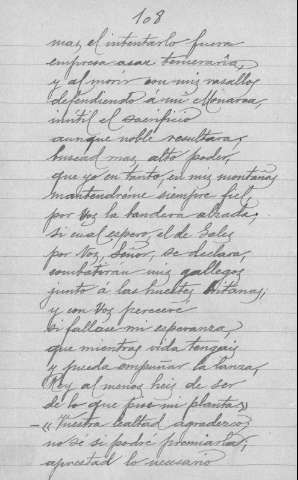 108
mas, el intentarlo fuera
empresa asaz temeraria,
y al morir con mis vasallos
defendiendo á mi Monarca,
inútil el sacrificio
aunque noble resultara;
buscad mas alto poder,
que yo en tanto, en mis montañas
mantendréme siempre fiel,
por Vos la bandera alzada;
si cual espero, el de Gales
por Vos, Señor, se declara,
combatirán mis gallegos
junto á las huestes Britanas;
y con Vos pereceré
si fallase mi esperanza,
que mientras vida tengais
y pueda empuñar la lanza,
Rey al menos heis de ser
de lo que pise mi planta»
— «Vuestra lealtad agradezco,
no sé si podré premiarla;
aprestad lo necesario